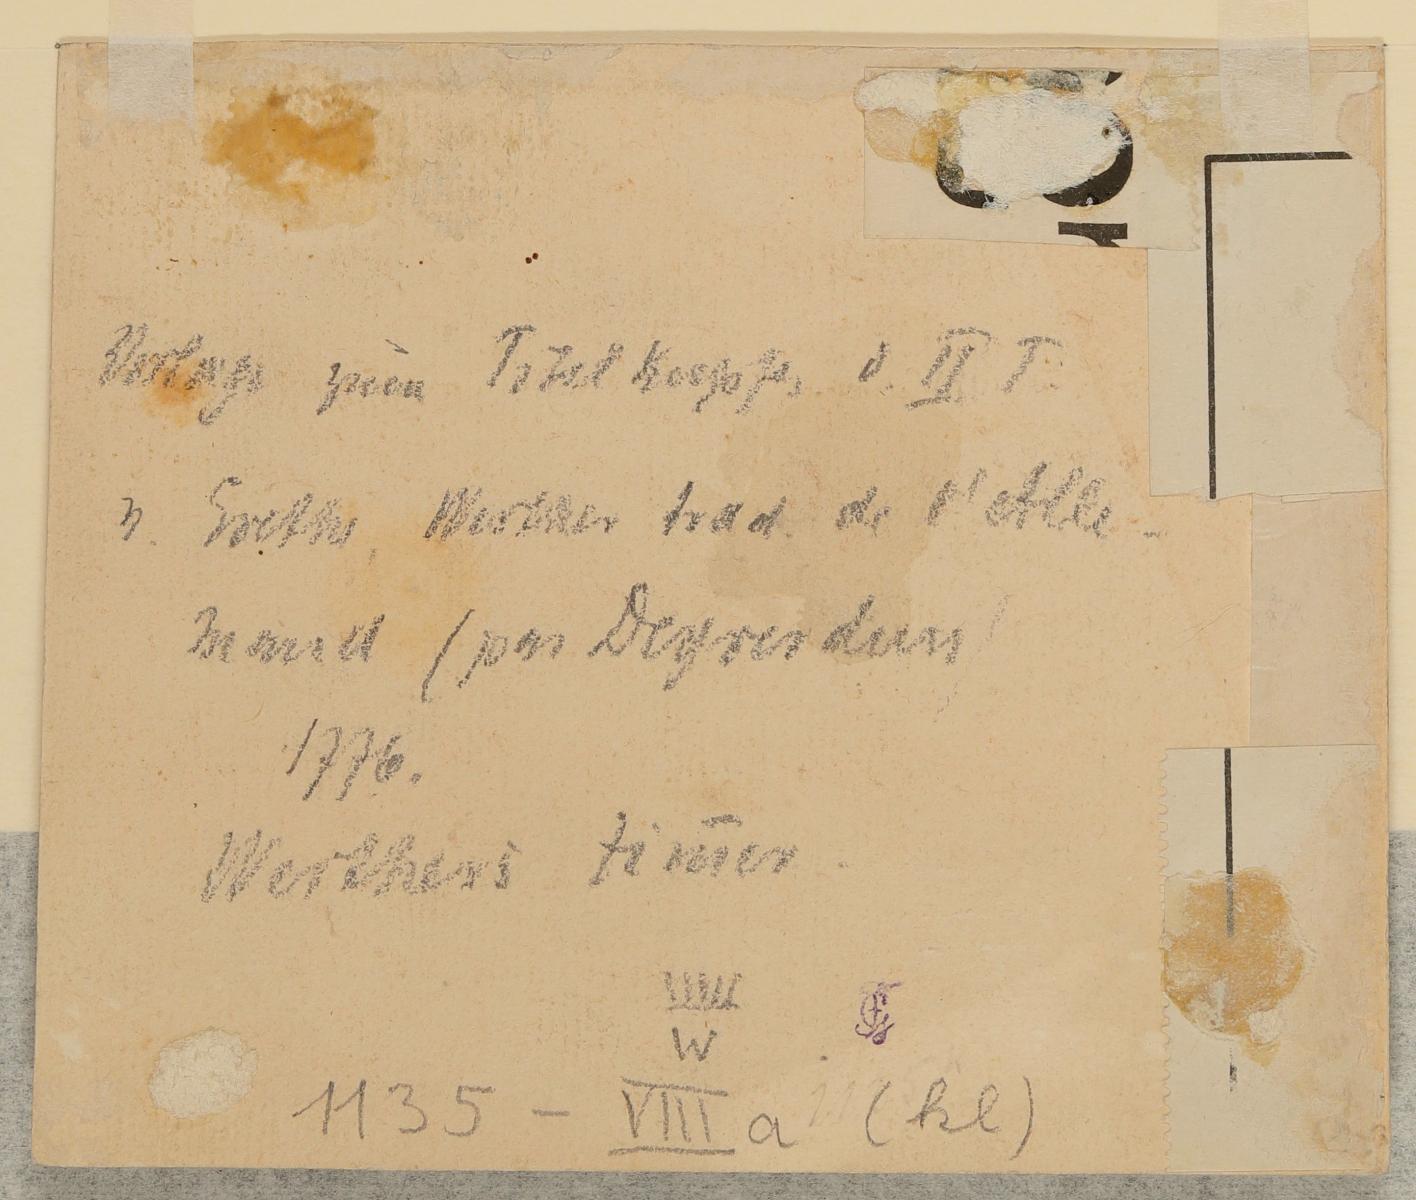 Vorlage zum Titelkupfer d. II T.
z. Goethe, Werther trad. de l'Alle-
mand (par Deyverdun)
1776.
Werthers Zim̄er.
W
1135 - VIII a (kl)